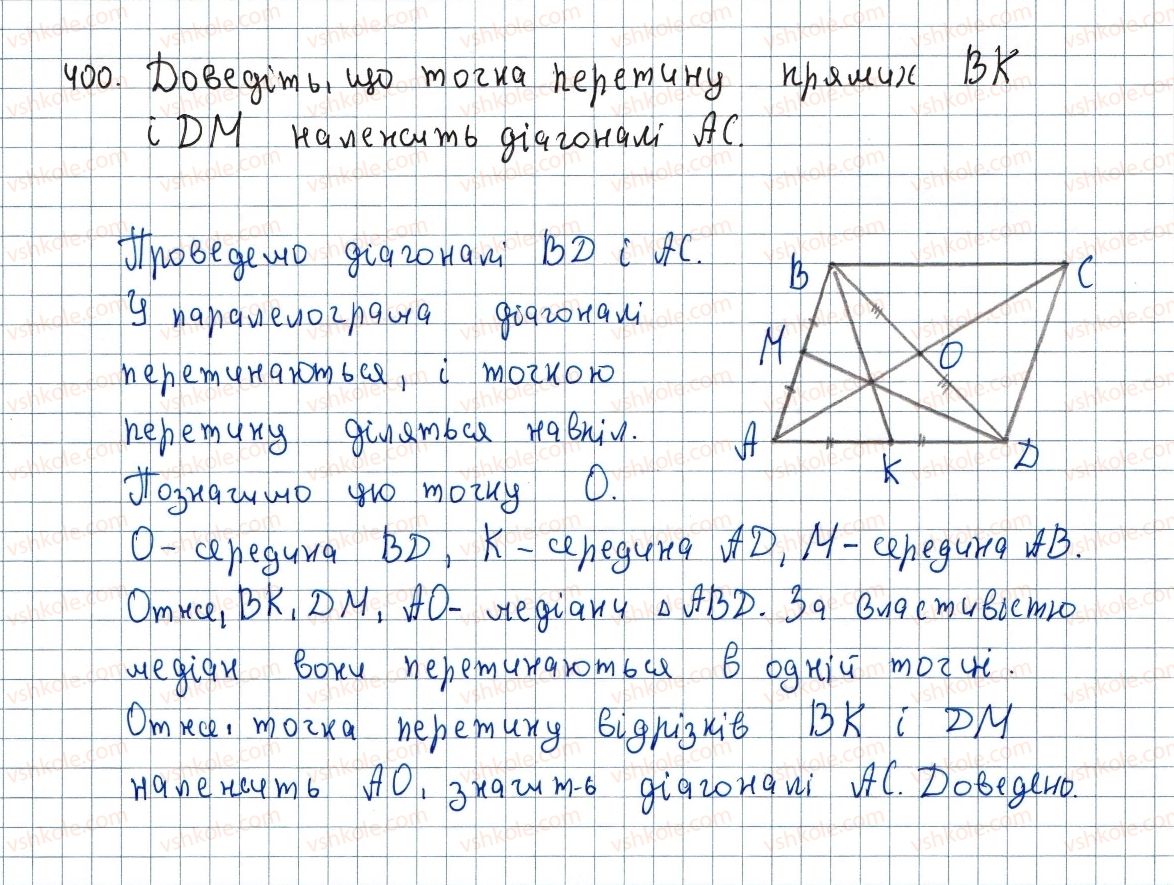 400. Доведіть, що точка перетину прямих ВК
і DM належить діагоналі АС.
Проведемо діагоналі BD і АС.
У паралелограма діагоналі
перетинаються, і точкою
перетину діляться навпіл.
Позначимо цю точку О.
О - середина BD, К - середина AD, М - середина АВ.
Отже, ВК, DM, АО - медіани △ ABD. За властивістю
медіан вони перетинаються в одній точці.
Отже, точка перетину відрізків ВК і DM
належить АО, значить діагоналі АС. Доведено.
B
C
M
O
A
K
D
vshkole.com